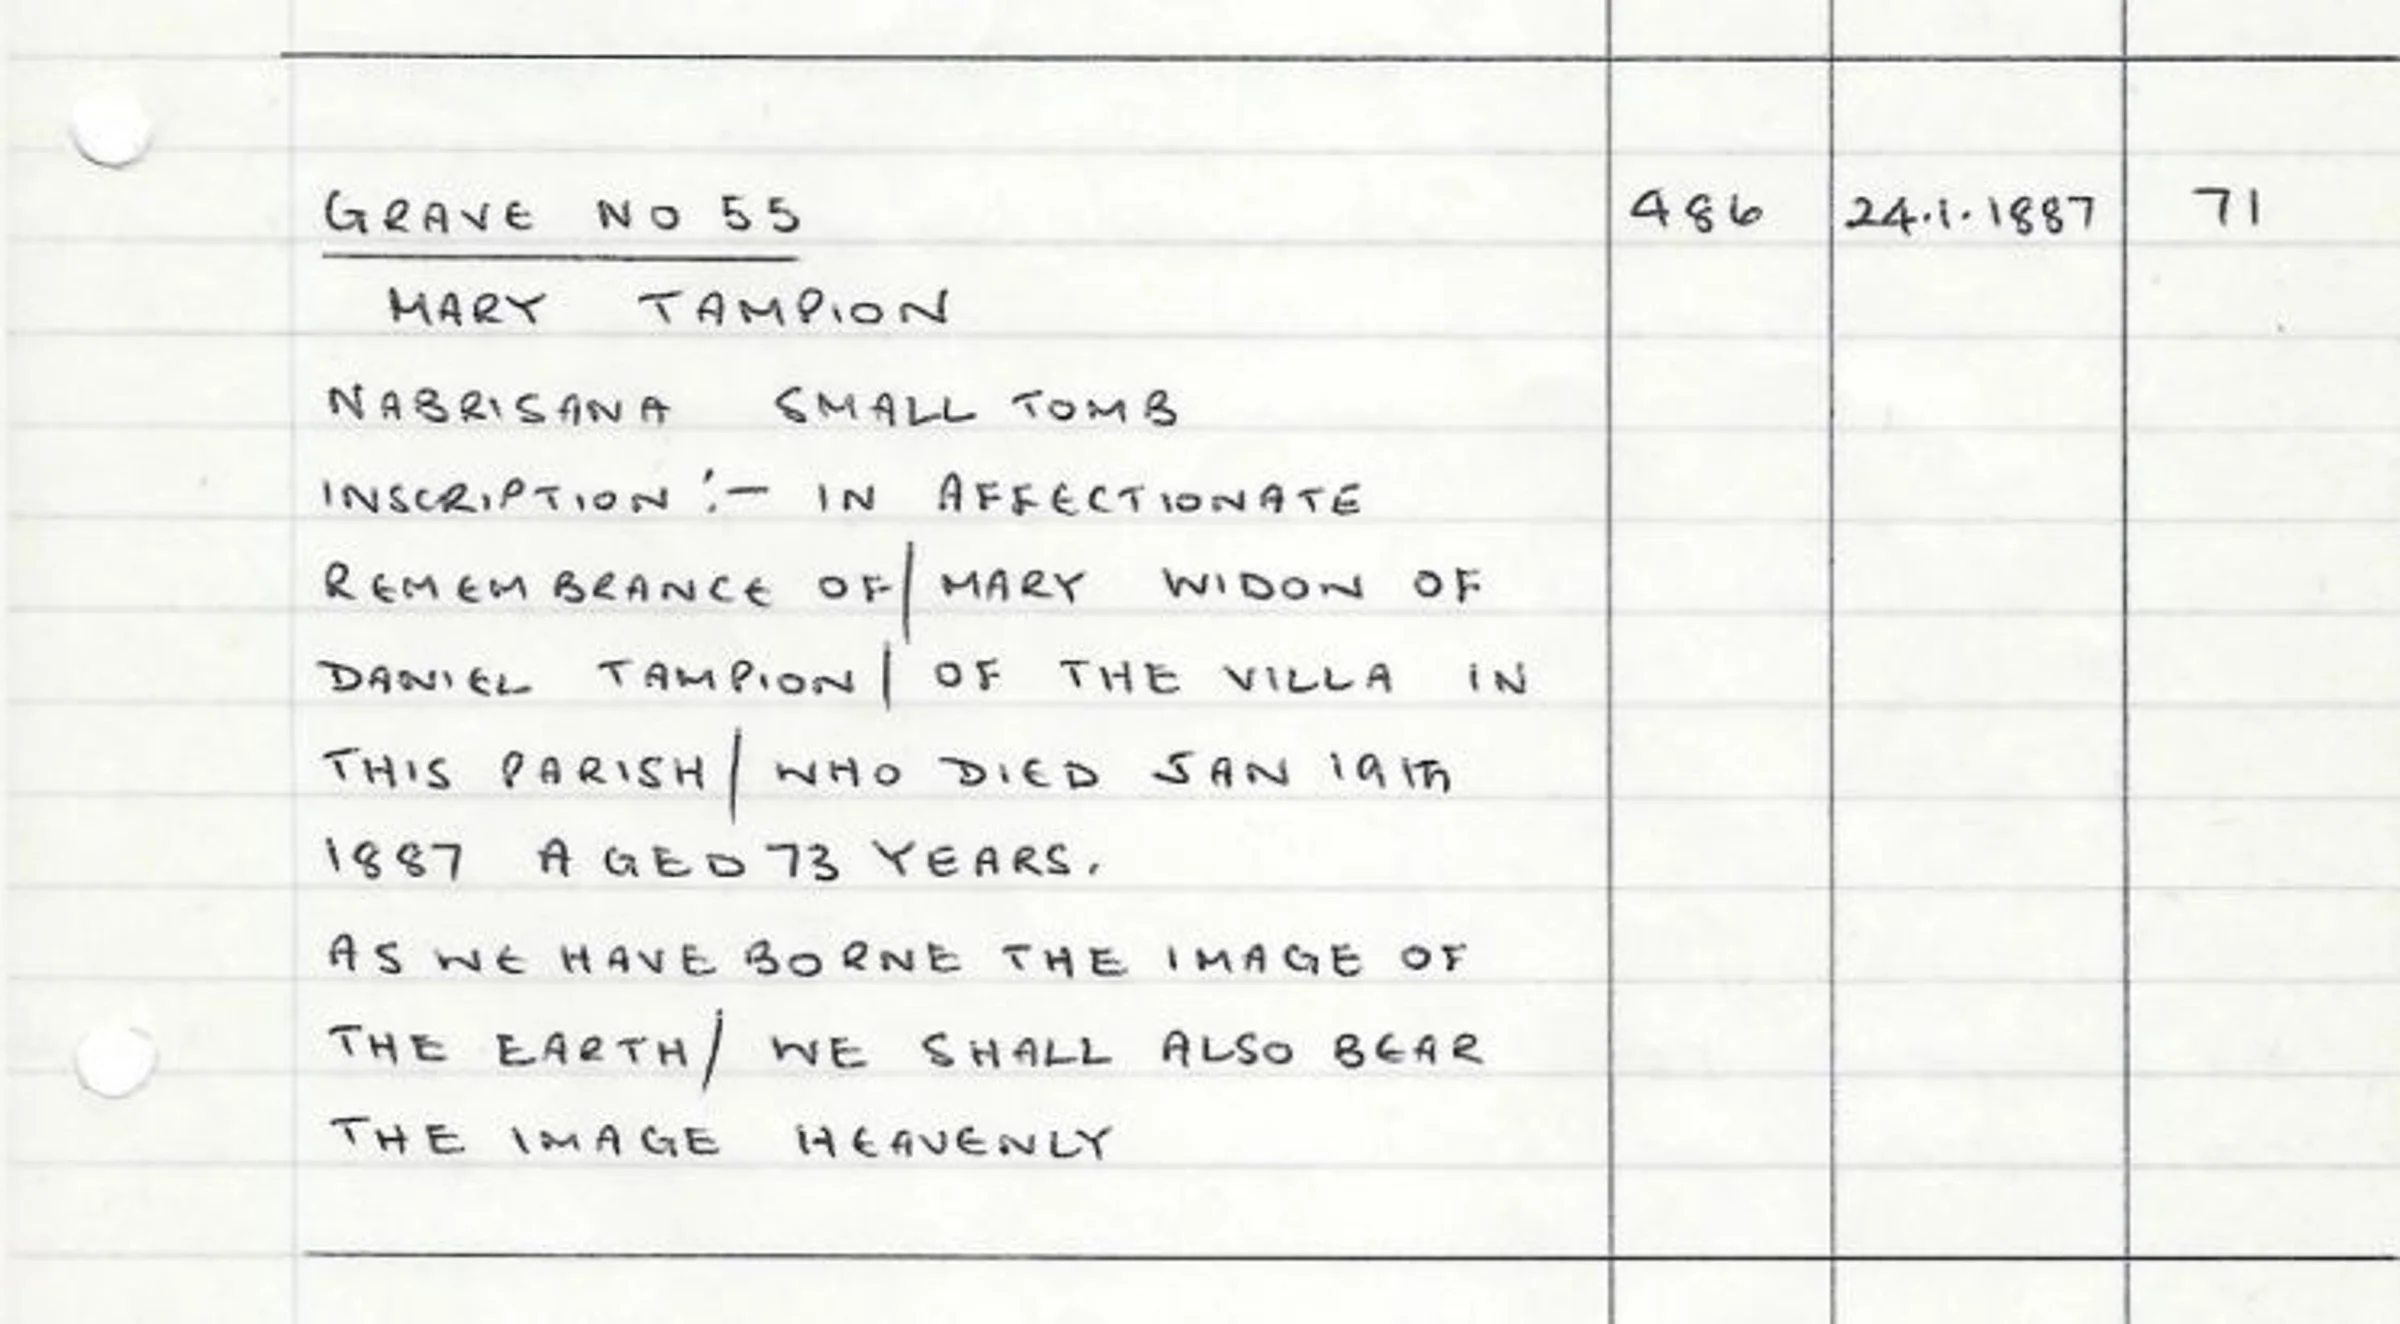 GRAVE NO 55 486 24.1.1887 71
MARY TAMPION
NABRISANA SMALL TOMB
INSCRIPTION :- IN AFFECTIONATE
REMEMBRANCE OF/ MARY WIDOW OF
DANIEL TAMPION/ OF THE VILLA IN
THIS PARISH/ WHO DIED JAN 19TH
1887 AGED 73 YEARS.
AS WE HAVE BORNE THE IMAGE OF
THE EARTH/ WE SHALL ALSO BEAR
THE IMAGE HEAVENLY